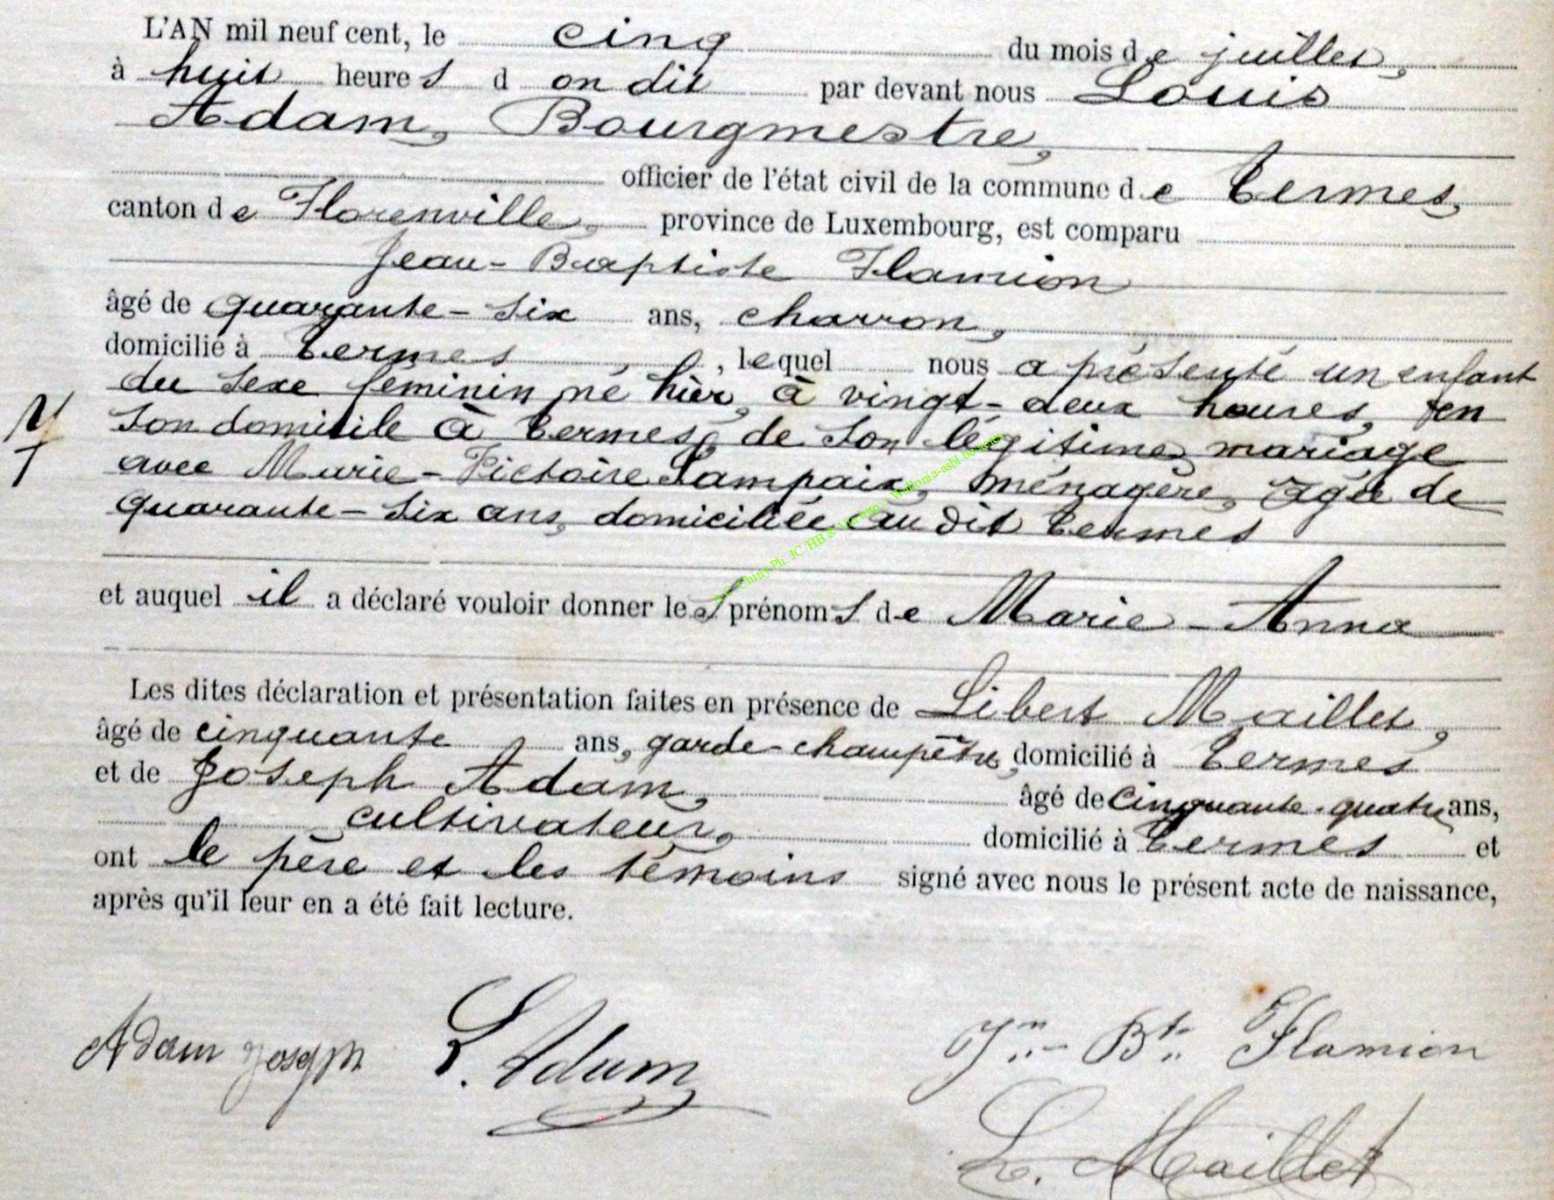 L'AN mil neuf cent, le cinq du mois de juillet,
à huit heures d on dit par devant nous Louis
Adam, Bourgmestre,
officier de l'état civil de la commune de Termes,
canton de Florenville, province de Luxembourg, est comparu
Jean-Baptiste Flamion
âgé de quarante-six ans, charron,
domicilié à Termes, lequel nous a présenté un enfant
du sexe féminin né hier, à vingt-deux heures, en
son domicile à Termes, de son légitime mariage
avec Marie-Victoire Lampaix, ménagère, âgée de
quarante-six ans, domiciliée au dit Termes
et auquel il a déclaré vouloir donner les prénoms de Marie-Anna
Les dites déclaration et présentation faites en présence de Libert Maillet,
âgé de cinquante ans, garde-champêtre, domicilié à Termes
et de Joseph Adam, âgé de cinquante-quatre ans,
cultivateur, domicilié à Termes et
ont le père et les témoins signé avec nous le présent acte de naissance,
après qu'il leur en a été fait lecture.
Adam Joseph L. Adam Jn.- Bte. Flamion
L. Maillet